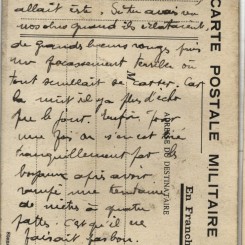 allait être. Si tu avais vu
nos obus quand ils éclataient,
de grands lueurs rouges puis
un fracassement terrible où
tout semblait se casser. Car
la nuit il y a plus d'écho
que le jour. Enfin pour
une fois on s'en est tiré
tranquillement par les
boyaux après avoir
rampé une trentaine
de mètres à quatre
pattes. C'est qu'il ne
faisait pas bon.
CARTE POSTALE MILITAIRE
En Franch
ADRESSE DU DESTINATAIRE
M